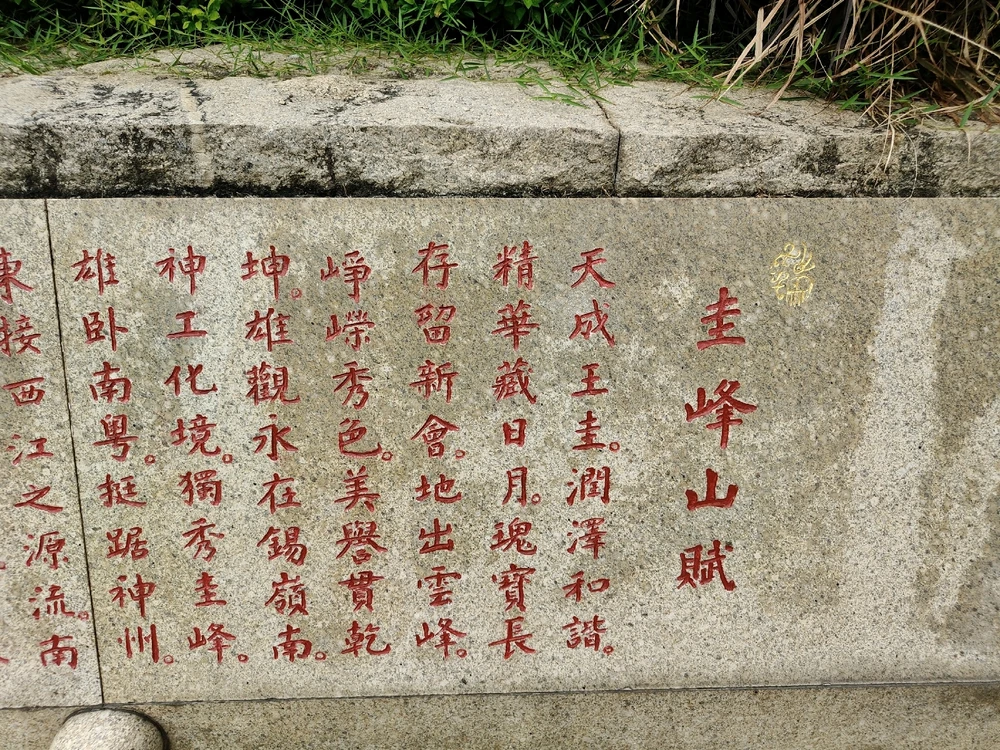 圭峰山賦
天成王圭。潤澤和諧。
精華藏日月。瑰寶長
存留新會。地出雲峰。
崢嶸秀色。美譽貫乾
坤。雄觀永在錫嶺南。
神工化境。獨秀圭峰。
雄卧南粵。挺踞神州。
東接西江之源流。南